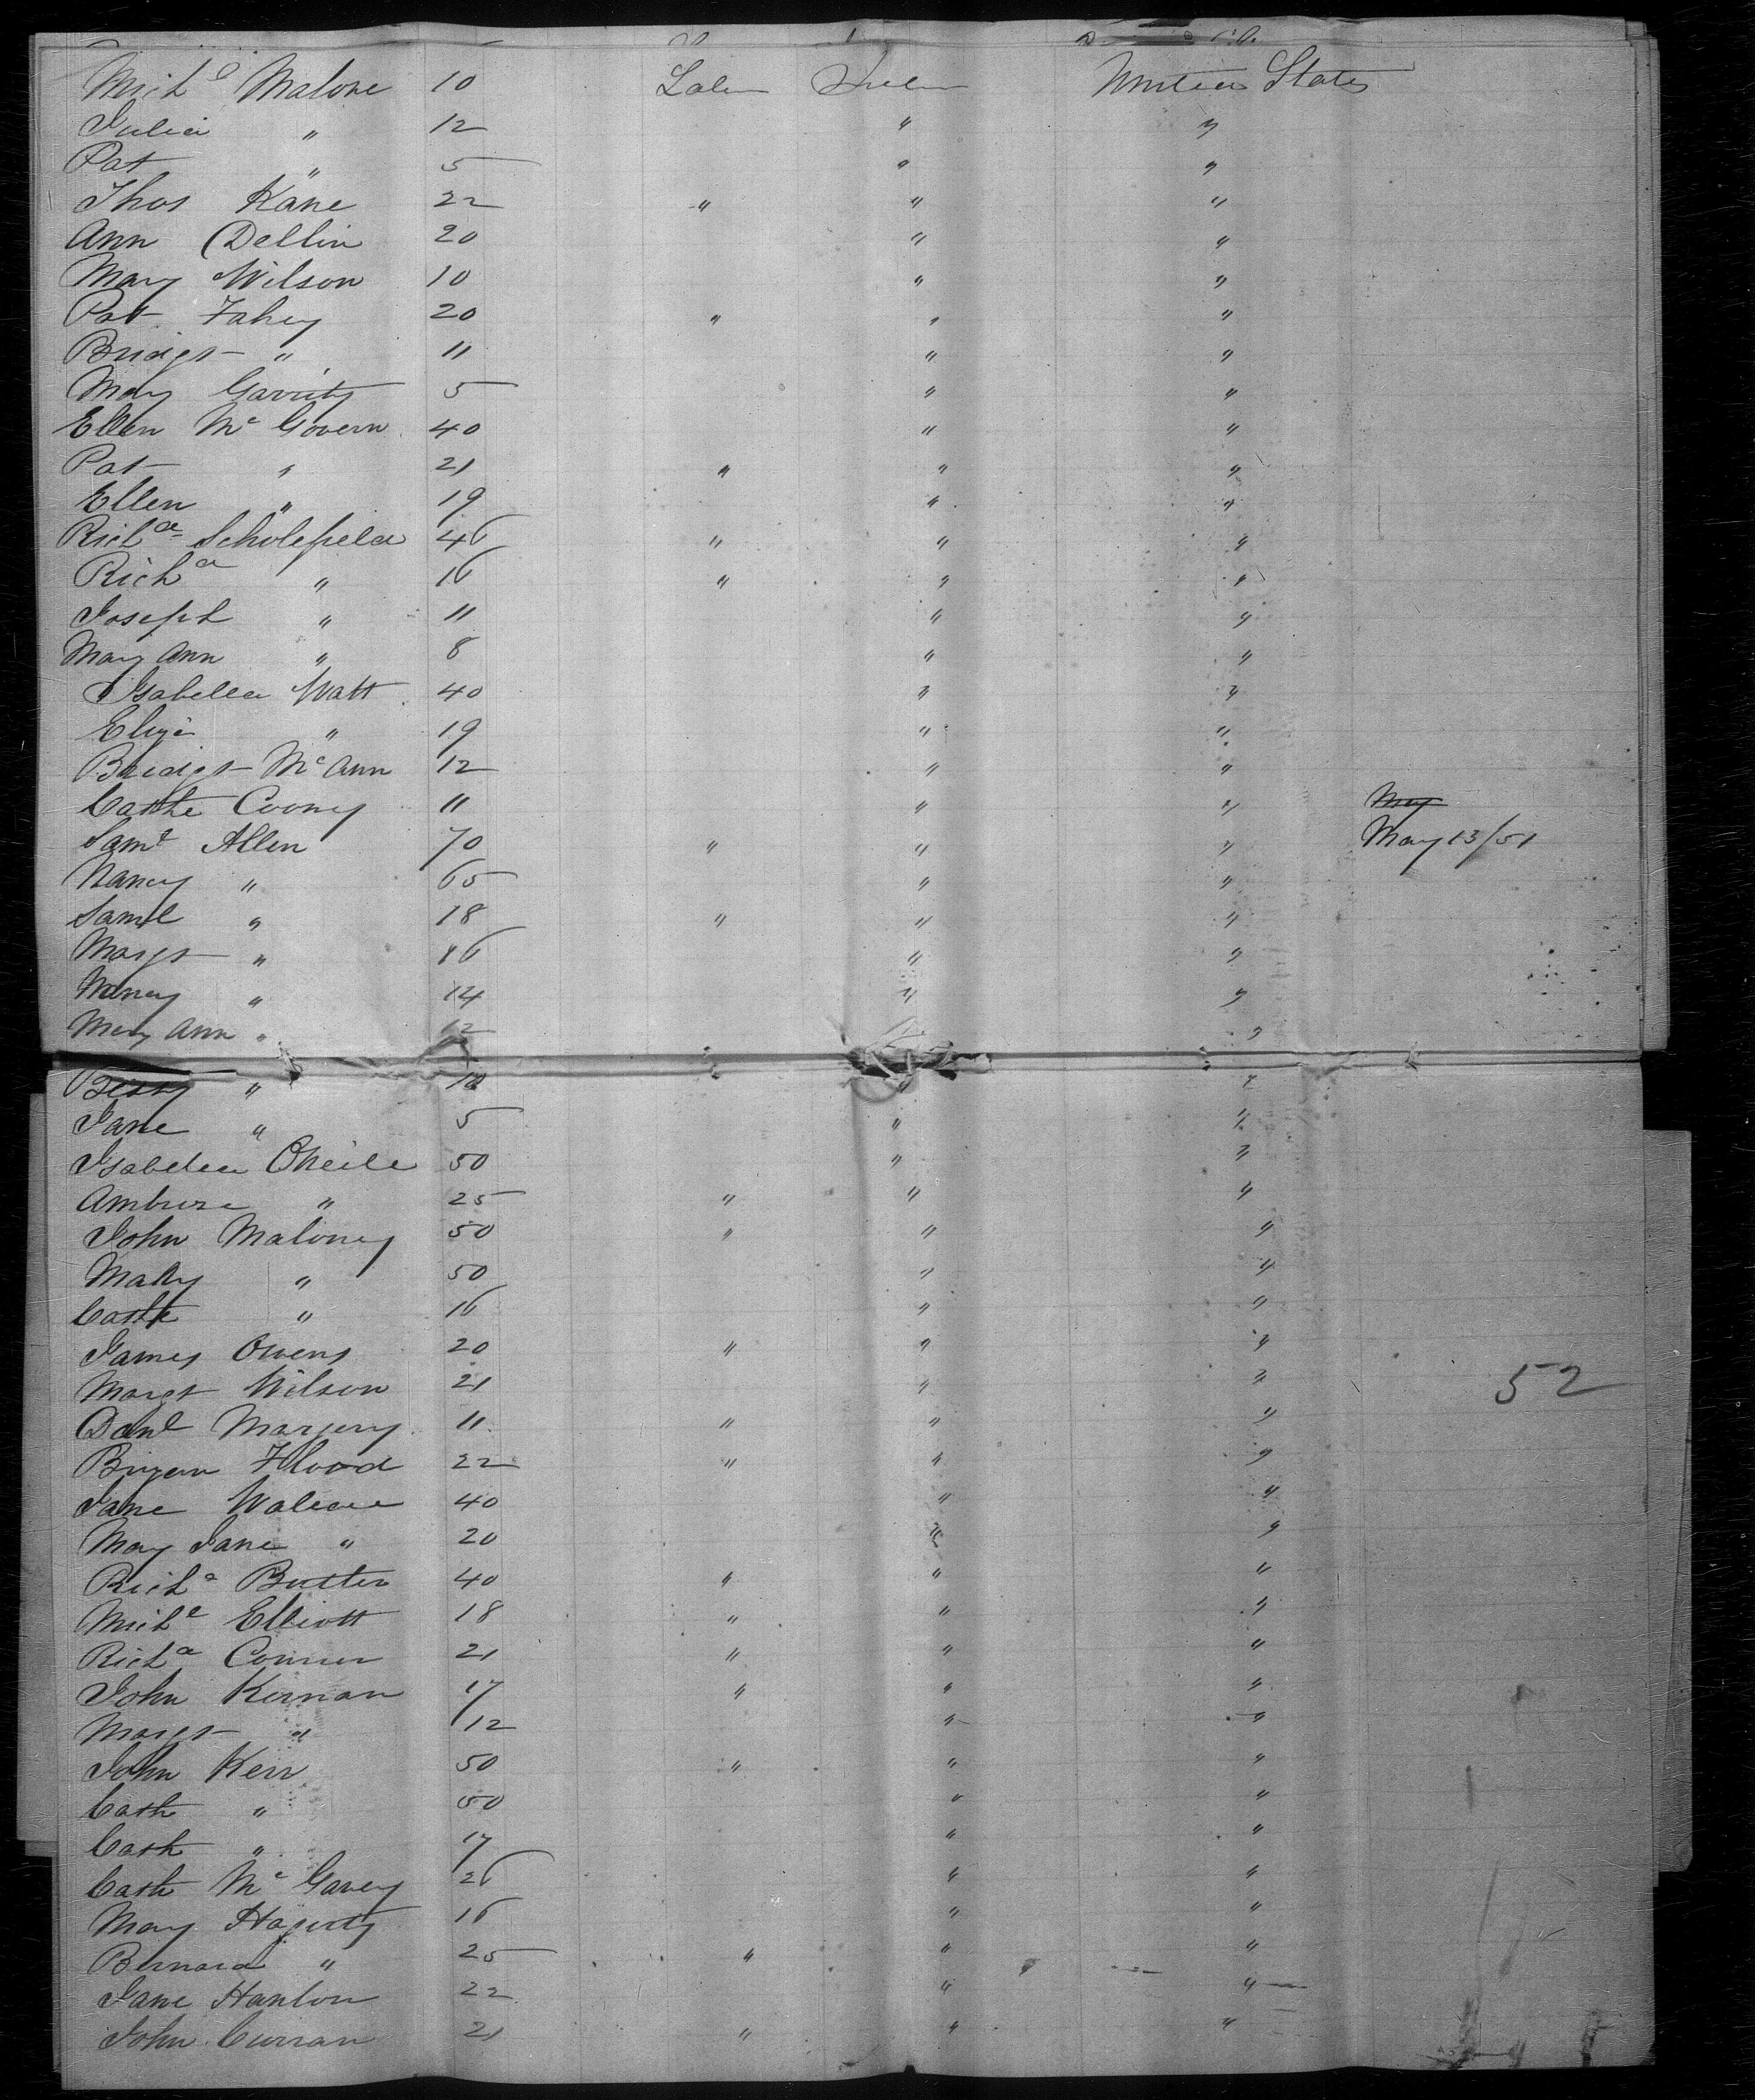 Michl Malone 10 Labr Ireln United States
Julia " 12 " "
Pat " 5 " "
Thos Kane 22 " " "
Ann Dellin 20 " "
Mary Wilson 10 " "
Pat Fahey 20 " " "
Bridgt " 11 " "
Mary Garrity 5 " "
Ellen Mc Govern 40 " "
Pat " 21 " " "
Ellen " 19 " "
Richd Scholefield 46 " " "
Richd " 16 " " "
Joseph " 11 " "
Mary Ann " 8 " "
Isabella Watt 40 " "
Eliza " 19 " "
Bridgt McAnn 12 " "
Cathe Cooney 11 " " May
Saml Allen 70 " " " May 13/51
Nancy " 65 " "
Saml " 18 " " "
Margt " 16 " "
" 14 " "
Mary Ann " 12 "
Bessy " 10 " "
Jane " 5 " "
Isabella Oneile 50 " "
Ambrose " 25 " " "
John Maloney 50 " " "
Mary " 50 " "
Cathe " 16 " "
James Owens 20 " " "
Margt Wilson 21 " " 52
Danl Margery 11 " " "
Bryan Flood 22 " " "
Jane Wallace 40 " "
Mary Jane " 20 " "
Richd Butler 40 " " "
Michl Elliott 18 " " "
Richd Conner 21 " " "
John Kernan 17 " " "
Margt " 12 " "
John Kerr 50 " " "
Cath " 50 " "
Cath " 17 " "
Cath Mc Gavey 26 " "
Mary Hagerty 16 " "
Bernard " 25 " " "
Jane Hanlon 22 " "
John Curran 21 " " "